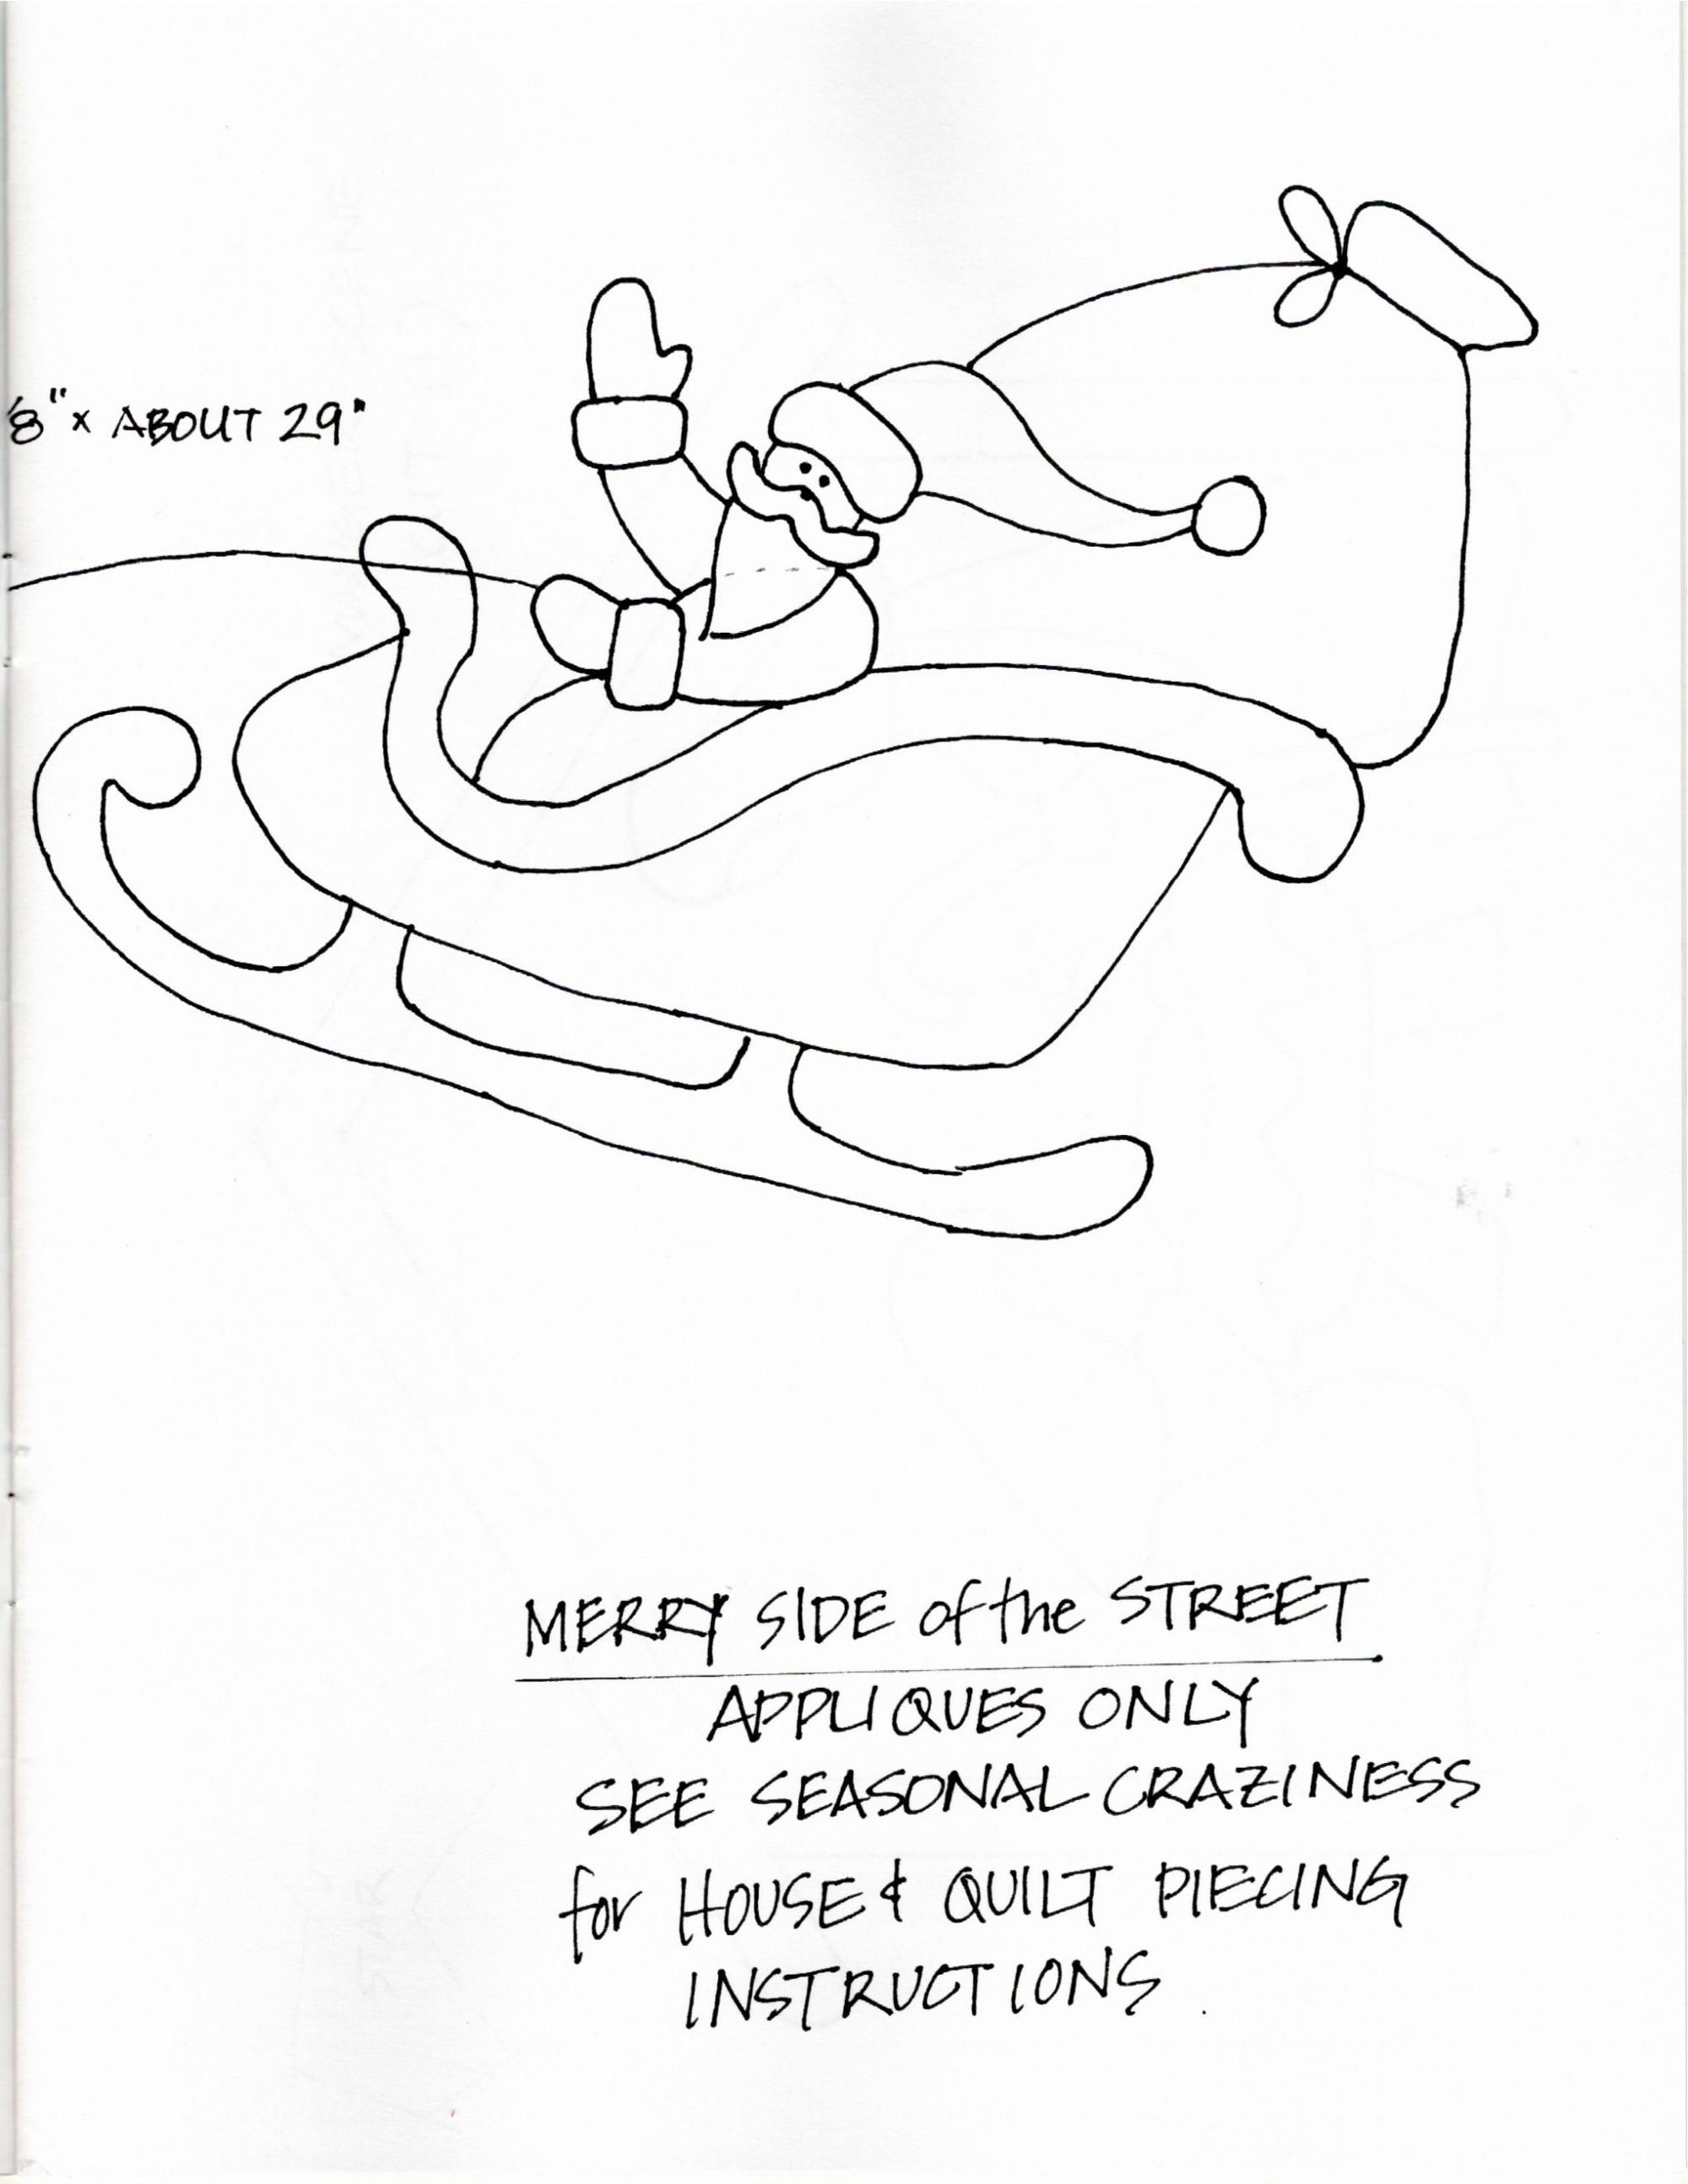 /8" x ABOUT 29"
MERRY SIDE of the STREET
APPLIQUES ONLY
SEE SEASONAL CRAZINESS
for HOUSE & QUILT PIECING
INSTRUCTIONS.